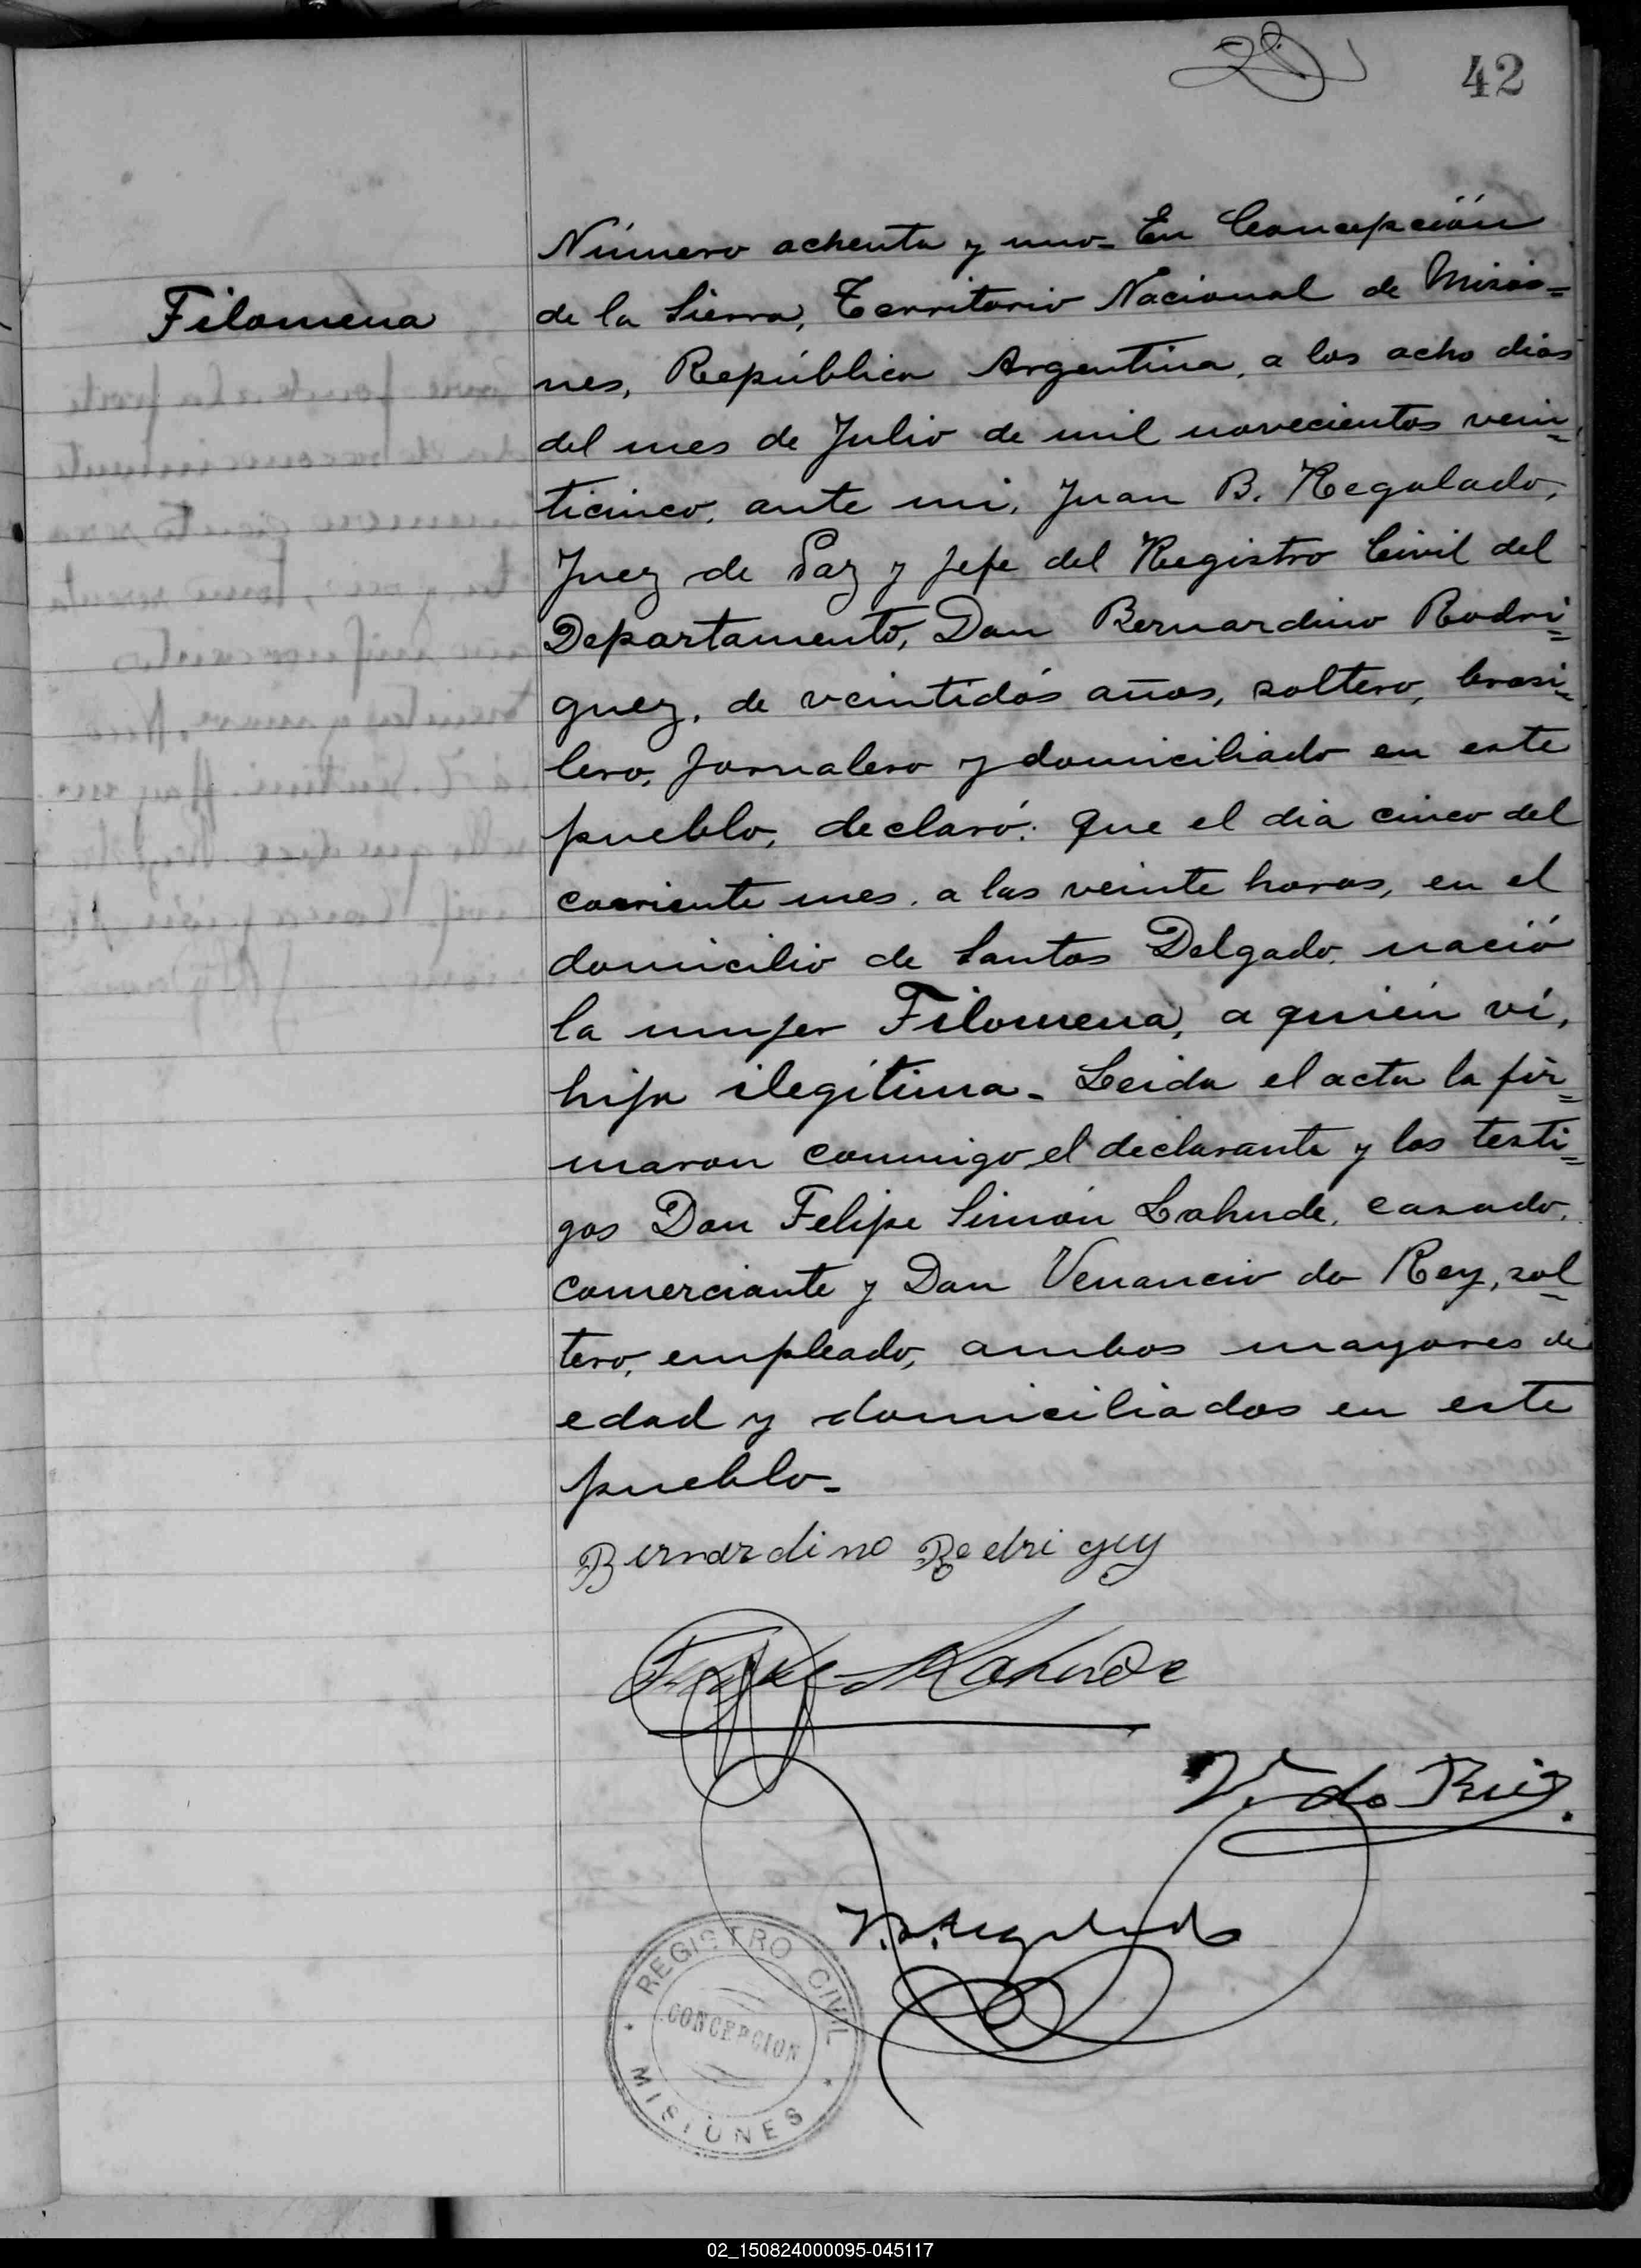 42
Filomena
Número ochenta y uno - En Concepción
de la Sierra, Territorio Nacional de Misio=
nes, República Argentina, a los ocho dias
del mes de Julio de mil novecientos vein=
ticinco, ante mi, Juan B. Regalado,
Juez de Paz y Jefe del Registro Civil del
Departamento, Don Bernardino Rodri=
guez, de veintidós años, soltero, brasi=
lero, jornalero y domiciliado en este
pueblo, declaró: Que el dia cinco del
corriente mes, a las veinte horas, en el
domicilio de Santos Delgado, nació
la mujer Filomena, a quién ví,
hija ilegítima - Leida el acta la fir=
maron conmigo el declarante y los testi=
gos Don Felipe Simón Lahude, casado,
comerciante y Don Venancio do Rey, sol=
tero, empleado, ambos mayores de
edad y domiciliados en este
pueblo -
Bernardino Rodriguez
Lahude
V. do Rey
REGISTRO CIVIL
CONCEPCION
MISIONES
02_150824000095-045117